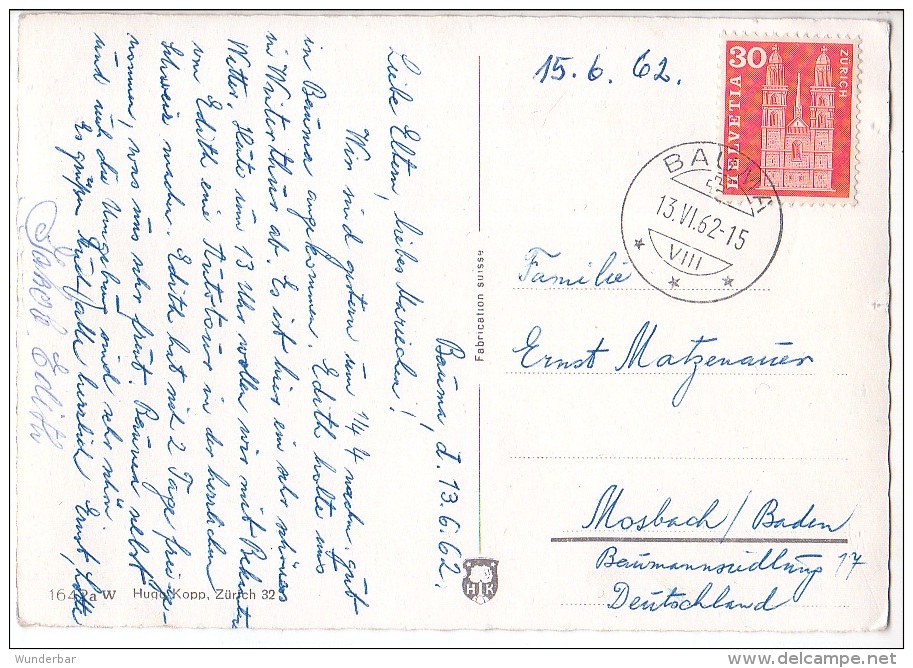 Bauma, d. 13.6.62.
Liebe Eltern, liebes Mariechen!
Wir sind gestern um 1/4 4 nachm. gut
in Bauma angekommen. Edith holte uns
in Winterthur ab. Es ist hier ein sehr schönes
Wetter. Heute um 13 Uhr wollen wir mit Bekannten
von Edith eine Autotour in der herrlichen
Schweiz machen. Edith hat sich 2 Tage frei ge-
nommen, was uns sehr freut. Bauma selbst
und auch die Umgebung sind sehr schön.
Es grüßen Euch alle herzlich Ernst, Lotte
Edith
15.6.62.
30
ZÜRICH
HELVETIA
BAUMA
13.VI.62-15
VIII
Familie
Ernst Matzenauer
Mosbach/Baden
Baumannsiedlung 17
Deutschland
Fabrication suisse
HK
Hugo Kopp, Zürich 32
Wunderbar
delcampe.net